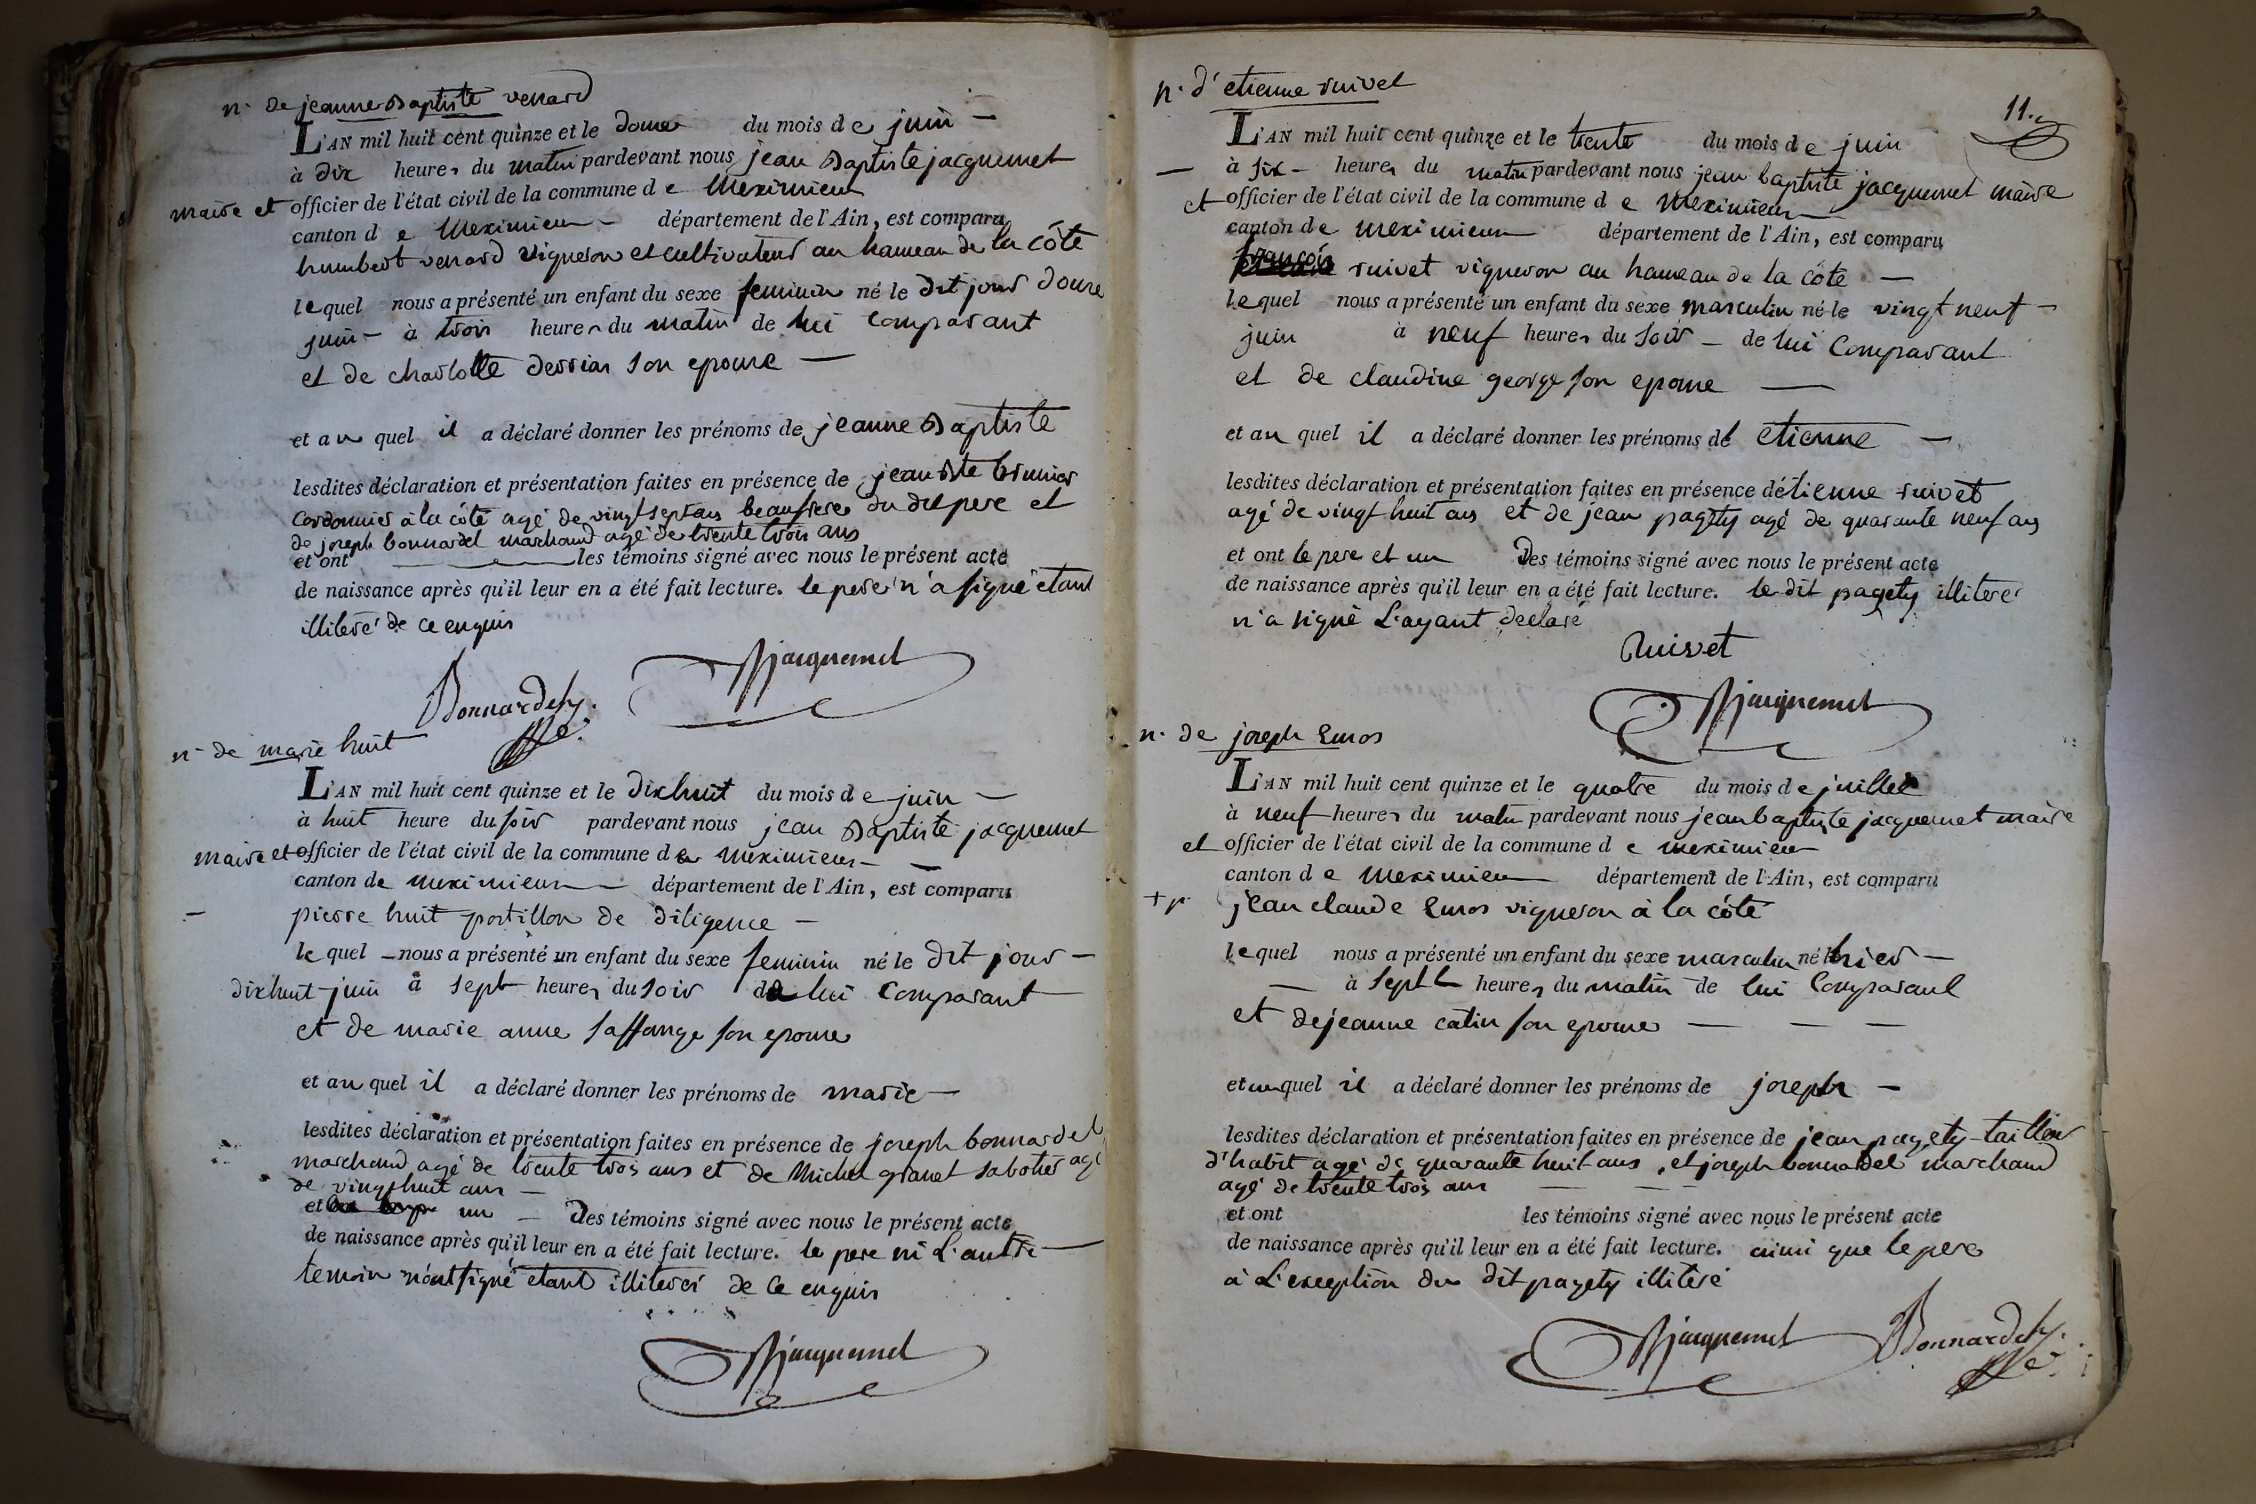 n. de jeanne Baptiste venard
L'AN mil huit cent quinze et le douze du mois de juin —
à dix heures du matin pardevant nous jean Baptiste jacquemet
maire et officier de l'état civil de la commune de Meximieux
canton de Meximieux — département de l'Ain, est comparu
humbert venard vigneron et cultivateur au hameau de la côte
lequel nous a présenté un enfant du sexe feminin né le dit jour douze
juin — à trois heures du matin de lui comparant
et de charlotte derrias son epouse —
et au quel il a déclaré donner les prénoms de jeanne Baptiste
lesdites déclaration et présentation faites en présence de jean Bte brunier
cordonnier à la côte agé de vingt sept ans beaufrere du dit pere et
de joseph bonnardel marchand agé de trente trois ans
et ont les témoins signé avec nous le présent acte
de naissance après qu'il leur en a été fait lecture. le pere n'a signé etant
illiteré de ce enquis
Bonnardel Jacquemet
n. de marie huit
L'AN mil huit cent quinze et le dixhuit du mois de juin —
à huit heure du soir pardevant nous jean Baptiste jacquemet
maire et officier de l'état civil de la commune de meximieux —
canton de meximieux — département de l'Ain, est comparu
— pierre huit postillon de diligence —
lequel — nous a présenté un enfant du sexe feminin né le dit jour —
dixhuit juin à sept heures du soir de lui comparant
et de marie anne saffange son epouse
et au quel il a déclaré donner les prénoms de marie —
lesdites déclaration et présentation faites en présence de joseph bonnardel
marchand agé de trente trois ans et de Michel granet sabotier agé
de vingthuit ans —
et un — des témoins signé avec nous le présent acte
de naissance après qu'il leur en a été fait lecture. le pere ni L'autre —
temoin n'ont signé etant illiterés de ce enquis
Jacquemet
11.
n. d'etienne ruivet
L'AN mil huit cent quinze et le trente du mois de juin
— à six — heures du matin pardevant nous jean baptiste jacquemet maire
et officier de l'état civil de la commune de Meximieux
canton de meximieux département de l'Ain, est comparu
françois ruivet vigneron au hameau de la côte —
lequel nous a présenté un enfant du sexe masculin né le vingt neuf —
juin à neuf heures du soir — de lui comparant
et de claudine george son epouse —
et au quel il a déclaré donner les prénoms de etienne —
lesdites déclaration et présentation faites en présence détienne ruivet
agé de vingt huit ans et de jean pagety agé de quarante neuf ans
et ont le pere et un Des témoins signé avec nous le présent acte
de naissance après qu'il leur en a été fait lecture. le dit pagety illiteré
n'a signé L'ayant declaré
Ruivet
Jacquemet
n. de joseph Emos
L'AN mil huit cent quinze et le quatre du mois de juillet
à neuf heures du matin pardevant nous jean baptiste jacquemet maire
et officier de l'état civil de la commune de meximieux
canton de Meximieux département de l'Ain, est comparu
jean claude Emos vigneron à la côte
lequel nous a présenté un enfant du sexe masculin né hier —
— à sept heures du matin de lui Comparant
et de jeanne catin son epouse — — —
et auquel il a déclaré donner les prénoms de joseph —
lesdites déclaration et présentation faites en présence de jean pagety tailleur
d'habit agé de quarante huit ans, et joseph bonnardel marchand
agé de trente trois ans — — —
et ont les témoins signé avec nous le présent acte
de naissance après qu'il leur en a été fait lecture. ainsi que le pere
à L'exception du dit pagety illiteré
Jacquemet Bonnardel